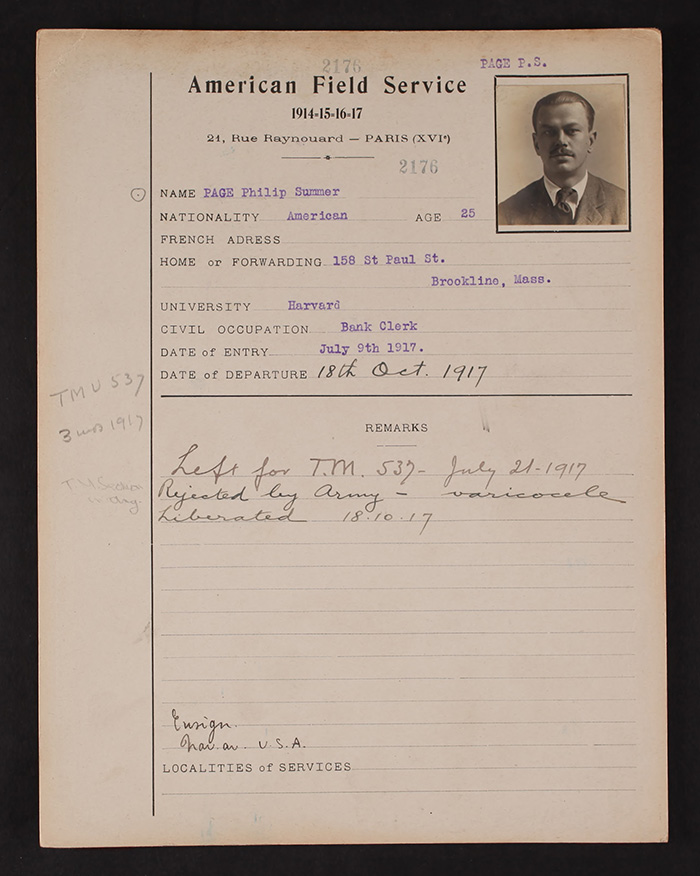 2176
PAGE P.S.
American Field Service
1914-15-16-17
21, Rue Raynouard — PARIS (XVIe)
2176
NAME PAGE Philip Summer
NATIONALITY American AGE 25
FRENCH ADRESS
HOME or FORWARDING 158 St Paul St.
Brookline, Mass.
UNIVERSITY Harvard
CIVIL OCCUPATION Bank Clerk
DATE of ENTRY July 9th 1917.
DATE of DEPARTURE 18th Oct. 1917
TMU 537
3 mos 1917
REMARKS
Left for T.M. 537- July 21-1917
Rejected by Army - varicocele
Liberated 18.10.17
Ensign.
U.S.A.
LOCALITIES of SERVICES